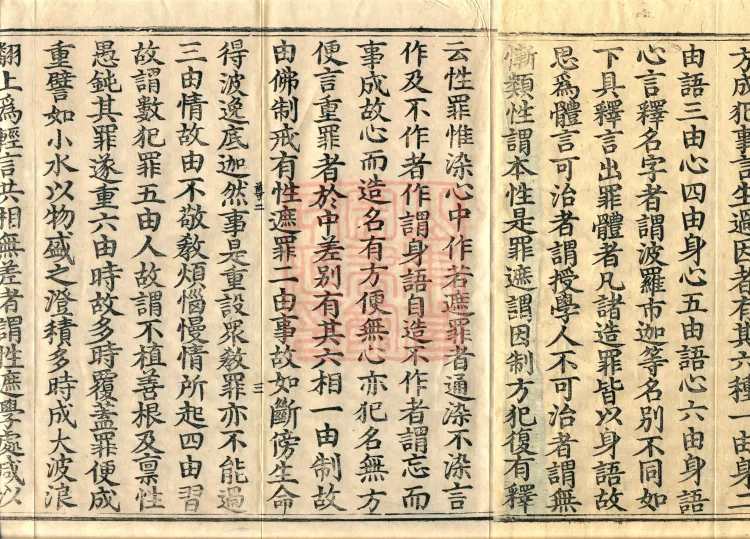 方成犯事言生過因者有其六種一由身二
由語三由心四由身心五由語心六由身語
心言釋名字者謂波羅市迦等名別不同如
下具釋言出罪體者凡諸造罪皆以身語故
思爲體言可治者謂授學人不可治者謂無
慚類性謂本性是罪遮謂因制方犯復有釋
云性罪惟染心中作若遮罪者通染不染言
作及不作者作謂身語自造不作者謂忘而
事成故心而造名有方便無心亦犯名無方
便言重罪者於中差別有其六相一由制故
由佛制戒有性遮罪二由事故如斷傍生命
尊二 三
得波逸底迦然事是重設眾教罪亦不能過
三由情故由不敬教煩惱慢情所起四由習
故謂數犯罪五由人故謂不植善根及稟性
愚鈍其罪遂重六由時故多時覆蓋罪便成
重譬如小水以物盛之澄積多時成大波浪
翻上爲輕言共相無差者謂性遮學處咸以